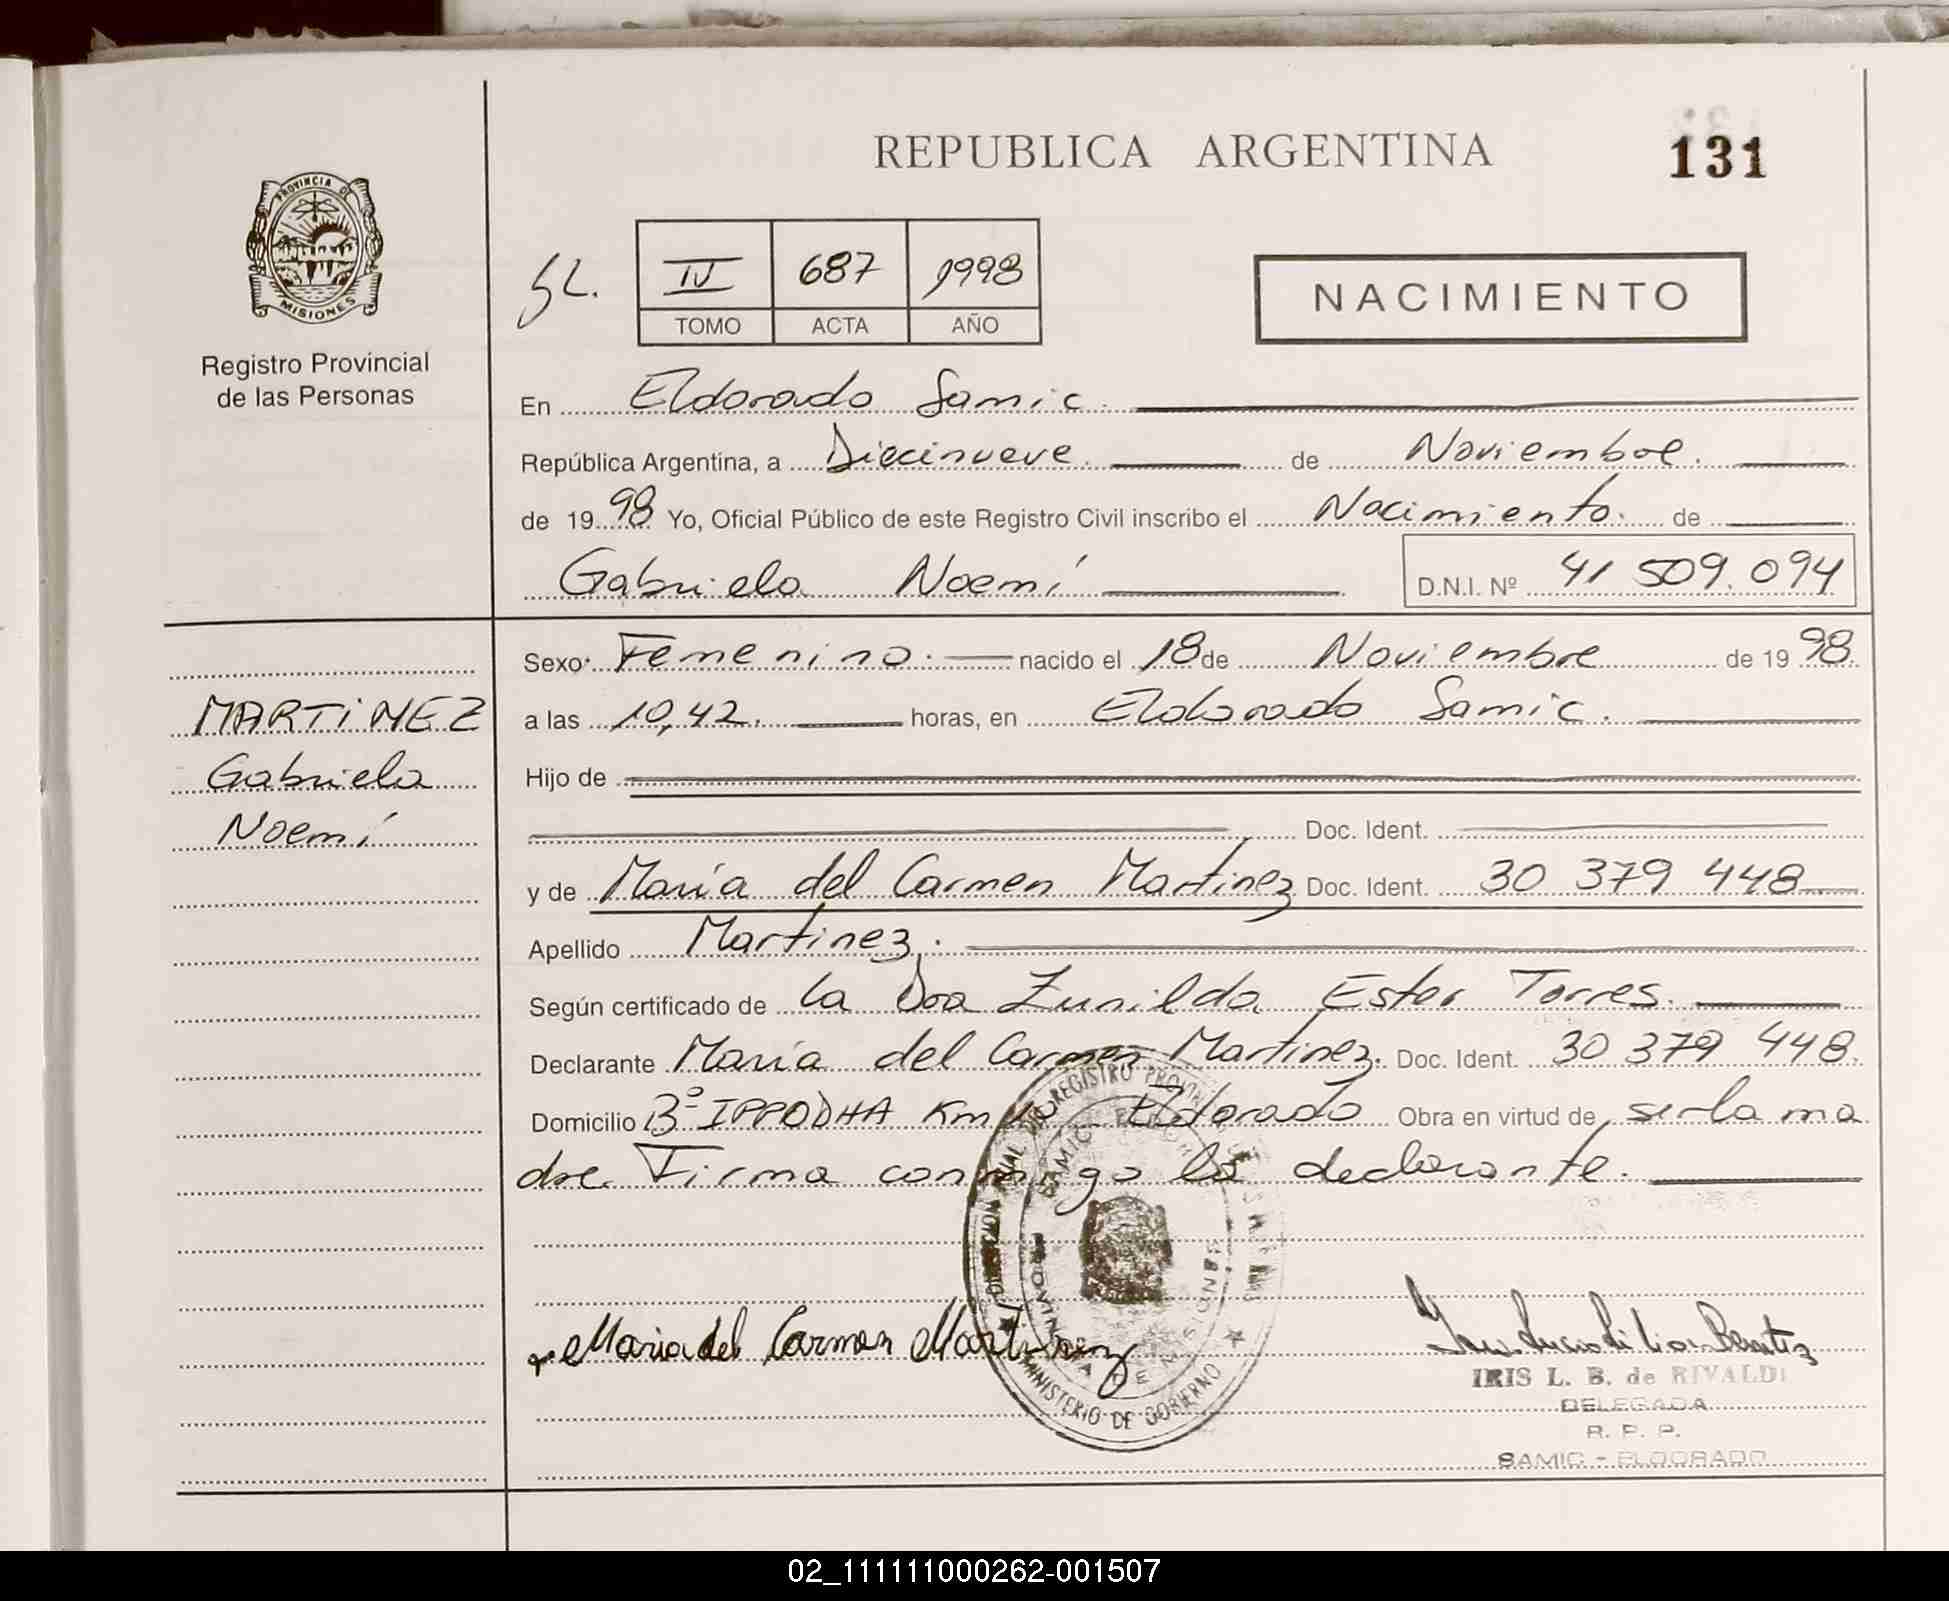 REPUBLICA ARGENTINA
131
PROVINCIA DE
MISIONES
Registro Provincial
de las Personas
SL.
IV 687 1998
TOMO ACTA AÑO
NACIMIENTO
En Eldorado Samic.
República Argentina, a Diecinueve. de Noviembre.
de 1998 Yo, Oficial Público de este Registro Civil inscribo el Nacimiento. de
Gabriela Noemí D.N.I. Nº 41 509.094
Sexo Femenino. nacido el 18 de Noviembre de 1998.
MARTINEZ
Gabriela
Noemí
a las 10,42. horas, en Eldorado Samic.
Hijo de
Doc. Ident.
y de María del Carmen Martínez Doc. Ident. 30 379 448
Apellido Martínez.
Según certificado de la Dra Zunilda Ester Torres.
Declarante María del Carmen Martínez. Doc. Ident. 30 379 448.
Domicilio Bº IPRODHA Km Eldorado Obra en virtud de ser la ma
dre. Firma conmigo la declarante.
MINISTERIO DE GOBIERNO
Maria del Carmen Martinez
IRIS L. B. de RIVALDI
DELEGADA
R. P. P.
SAMIC - ELDORADO
02_111111000262-001507